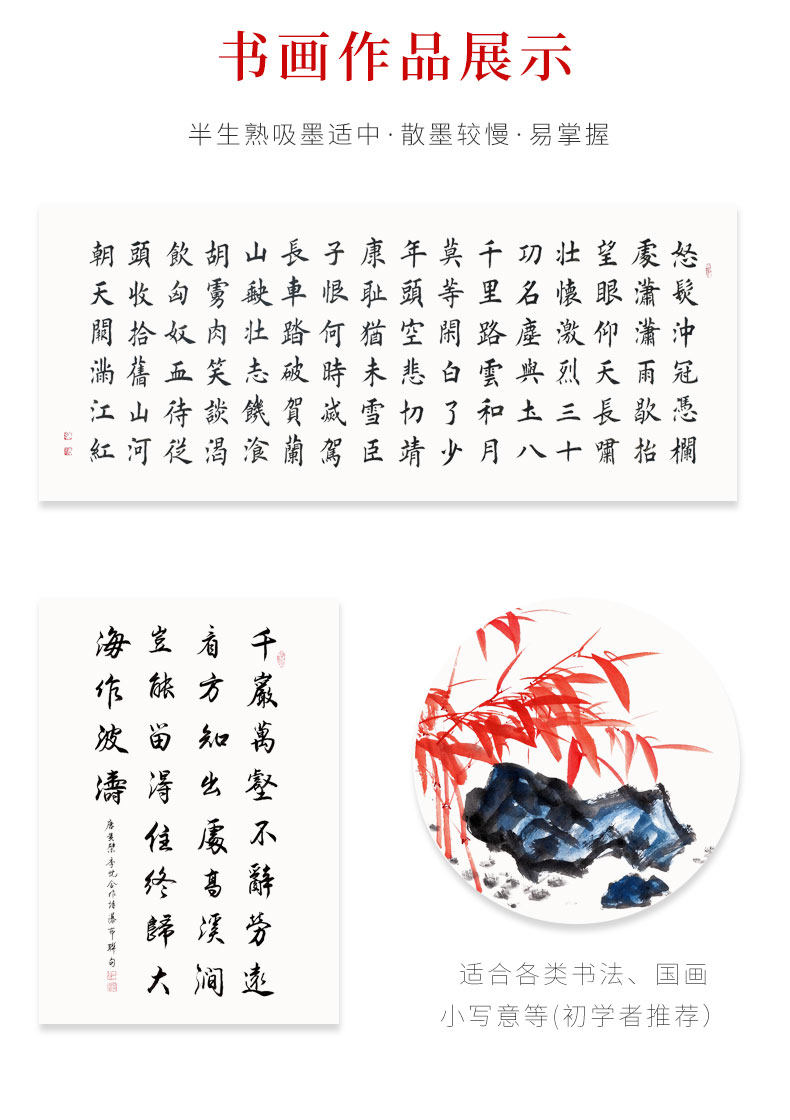 书画作品展示
半生熟吸墨适中·散墨较慢·易掌握
怒髮沖冠憑欄
處瀟瀟雨歇抬
望眼仰天長嘯
壯懷激烈三十
功名塵與土八
千里路雲和月
莫等閑白了少
年頭空悲切靖
康耻猶未雪臣
子恨何時滅駕
長車踏破賀蘭
山缺壮志饑飡
胡虜肉笑談渴
飲匈奴血待從
頭收拾舊山河
朝天闕滿江紅
千巖萬壑不辭勞遠
看方知出處高溪澗
豈能留得住終歸大
海作波濤
唐黄檗李忱合作詩瀑布聯句
适合各类书法、国画
小写意等(初学者推荐)